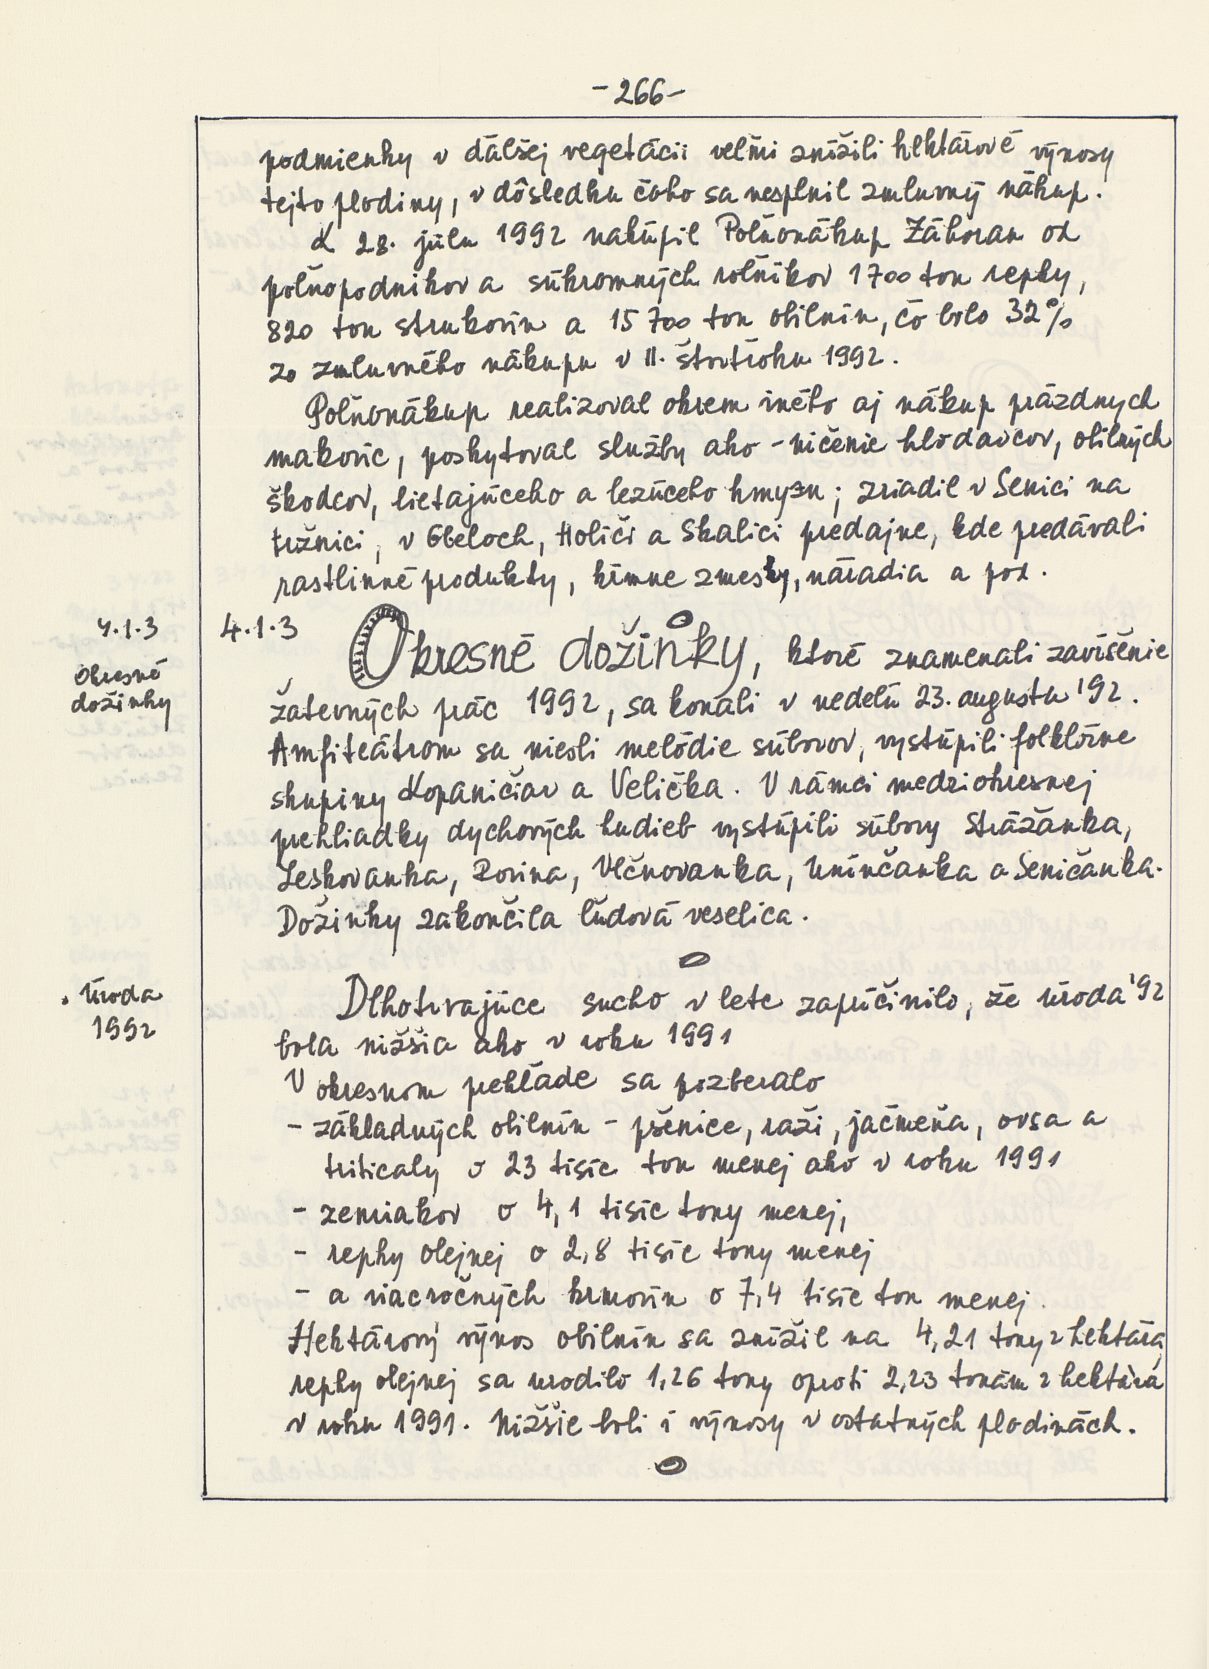 -266-
podmienky v ďalšej vegetácii veľmi znížili hektárové výnosy
tejto plodiny, v dôsledku čoho sa nesplnil zmluvný nákup.
K 28. júlu 1992 nakúpil Poľnonákup Záhoran od
poľnopodnikov a súkromných roľníkov 1700 ton repky,
820 ton strukovín a 15 700 ton obilnín, čo bolo 32%
zo zmluvného nákupu v II. štvrťroku 1992.
Poľnonákup realizoval okrem iného aj nákup prázdnych
makovíc, poskytoval služby ako - ničenie hlodavcov, obilných
škodcov, lietajúceho a lezúceho hmyzu; zriadil v Senici na
tržnici, v Gbeloch, Holíči a Skalici predajne, kde predávali
rastlinné produkty, kŕmne zmesky, náradia a pod.
4.1.3
Okresné
dožinky
4.1.3 Okresné dožinky, ktoré znamenali zavŕšenie
žatevných prác 1992, sa konali v nedeľu 23. augusta '92.
Amfiteátrom sa niesli melódie súborov, vystúpili folklórne
skupiny Kopaničiar a Velička. V rámci medziokresnej
prehliadky dychových hudieb vystúpili súbory Strážanka,
Leskovanka, Rovina, Vlčnovanka, Unínčanka a Seničanka.
Dožinky zakončila ľudová veselica.
Úroda
1992
Dlhotrvajúce sucho v lete zapríčinilo, že úroda '92
bola nižšia ako v roku 1991
V okresnom prehľade sa pozberalo
- základných obilnín - pšenice, raži, jačmeňa, ovsa a
triticaly o 23 tisíc ton menej ako v roku 1991
- zemiakov o 4,1 tisíc tony menej,
- repky olejnej o 2,8 tisíc tony menej
- a viacročných krmovín o 7,4 tisíc ton menej.
Hektárový výnos obilnín sa znížil na 4,21 tony z hektára,
repky olejnej sa urodilo 1,26 tony oproti 2,23 tonám z hektára
v roku 1991. Nižšie boli i výnosy v ostatných plodinách.